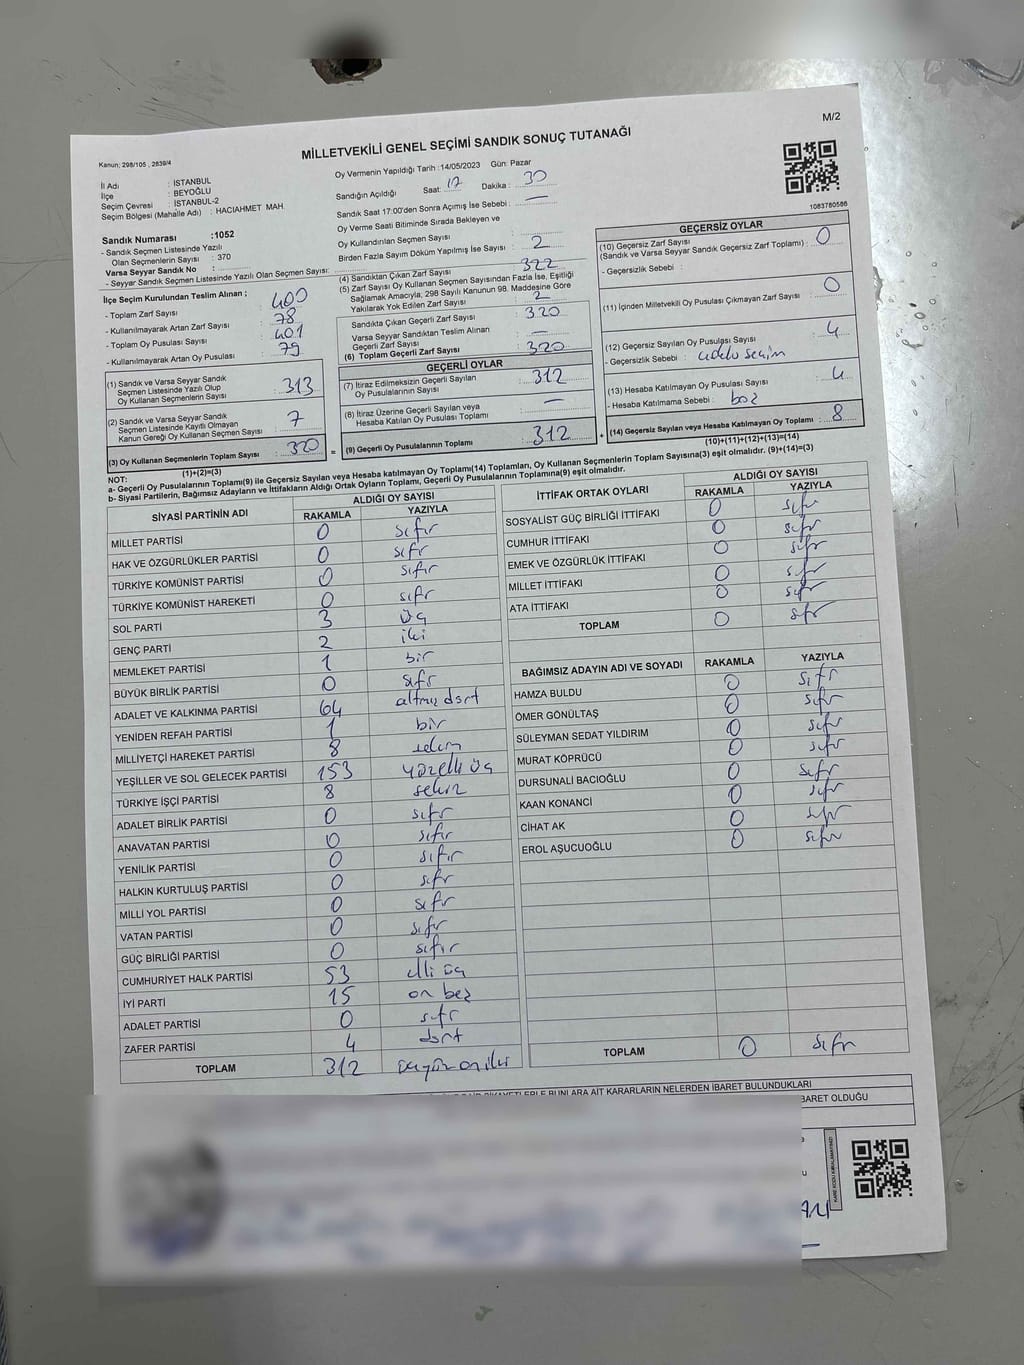 M/2
MİLLETVEKİLİ GENEL SEÇİMİ SANDIK SONUÇ TUTANAĞI
Kanun: 298/105 , 2839/4
İl Adı : İSTANBUL
İlçe : BEYOĞLU
Seçim Çevresi : İSTANBUL-2
Seçim Bölgesi (Mahalle Adı) : HACIAHMET MAH.
Sandık Numarası :1052
- Sandık Seçmen Listesinde Yazılı
Olan Seçmenlerin Sayısı : 370
Varsa Seyyar Sandık No :
- Seyyar Sandık Seçmen Listesinde Yazılı Olan Seçmen Sayısı:
Oy Vermenin Yapıldığı Tarih :14/05/2023 Gün: Pazar
Sandığın Açıldığı Saat: 17 Dakika : 30
Sandık Saat 17:00'den Sonra Açımış İse Sebebi : —
Oy Verme Saati Bitiminde Sırada Bekleyen ve
Oy Kullandırılan Seçmen Sayısı : —
Birden Fazla Sayım Döküm Yapılmış İse Sayısı : 2
1083780586
İlçe Seçim Kurulundan Teslim Alınan ;
- Toplam Zarf Sayısı : 400
- Kullanılmayarak Artan Zarf Sayısı : 78
- Toplam Oy Pusulası Sayısı : 401
- Kullanılmayarak Artan Oy Pusulası : 79
(1) Sandık ve Varsa Seyyar Sandık
Seçmen Listesinde Yazılı Olup
Oy Kullanan Seçmenlerin Sayısı : 313
(2) Sandık ve Varsa Seyyar Sandık
Seçmen Listesinde Kayıtlı Olmayan
Kanun Gereği Oy Kullanan Seçmen Sayısı : 7
(3) Oy Kullanan Seçmenlerin Toplam Sayısı : 320
(1)+(2)=(3)
(4) Sandıktan Çıkan Zarf Sayısı : 322
(5) Zarf Sayısı Oy Kullanan Seçmen Sayısından Fazla İse, Eşitliği
Sağlamak Amacıyla, 298 Sayılı Kanunun 98. Maddesine Göre
Yakılarak Yok Edilen Zarf Sayısı : 2
Sandıkta Çıkan Geçerli Zarf Sayısı : 320
Varsa Seyyar Sandıktan Teslim Alınan
Geçerli Zarf Sayısı : —
(6) Toplam Geçerli Zarf Sayısı : 320
GEÇERLİ OYLAR
(7) İtiraz Edilmeksizin Geçerli Sayılan
Oy Pusulalarının Sayısı : 312
(8) İtiraz Üzerine Geçerli Sayılan veya
Hesaba Katılan Oy Pusulası Toplamı : —
= (9) Geçerli Oy Pusulalarının Toplamı : 312 +
GEÇERSİZ OYLAR
(10) Geçersiz Zarf Sayısı
(Sandık ve Varsa Seyyar Sandık Geçersiz Zarf Toplamı) : 0
- Geçersizlik Sebebi :
(11) İçinden Milletvekili Oy Pusulası Çıkmayan Zarf Sayısı : 0
(12) Geçersiz Sayılan Oy Pusulası Sayısı : 4
- Geçersizlik Sebebi :
(13) Hesaba Katılmayan Oy Pusulası Sayısı : 4
- Hesaba Katılmama Sebebi : boz
(14) Geçersiz Sayılan veya Hesaba Katılmayan Oy Toplamı : 8
(10)+(11)+(12)+(13)=(14)
NOT:
a- Geçerli Oy Pusulalarının Toplamı(9) ile Geçersiz Sayılan veya Hesaba katılmayan Oy Toplamı(14) Toplamları, Oy Kullanan Seçmenlerin Toplam Sayısına(3) eşit olmalıdır. (9)+(14)=(3)
b- Siyasi Partilerin, Bağımsız Adayların ve İttifakların Aldığı Ortak Oyların Toplamı, Geçerli Oy Pusulalarının Toplamına(9) eşit olmalıdır.
SİYASİ PARTİNİN ADI ALDIĞI OY SAYISI
RAKAMLA YAZIYLA
MİLLET PARTİSİ 0 sıfır
HAK VE ÖZGÜRLÜKLER PARTİSİ 0 sıfr
TÜRKİYE KOMÜNİST PARTİSİ 0 sıfır
TÜRKİYE KOMÜNİST HAREKETİ 0 sıfr
SOL PARTİ 3 üç
GENÇ PARTİ 2 iki
MEMLEKET PARTİSİ 1 bir
BÜYÜK BİRLİK PARTİSİ 0 sıfr
ADALET VE KALKINMA PARTİSİ 64 altmış dört
YENİDEN REFAH PARTİSİ 1 bir
MİLLİYETÇİ HAREKET PARTİSİ 8 sekiz
YEŞİLLER VE SOL GELECEK PARTİSİ 153 yüzelli üç
TÜRKİYE İŞÇİ PARTİSİ 8 sekiz
ADALET BİRLİK PARTİSİ 0 sıfr
ANAVATAN PARTİSİ 0 sıfır
YENİLİK PARTİSİ 0 sıfır
HALKIN KURTULUŞ PARTİSİ 0 sıfr
MİLLİ YOL PARTİSİ 0 sıfr
VATAN PARTİSİ 0 sıfr
GÜÇ BİRLİĞİ PARTİSİ 0 sıfır
CUMHURİYET HALK PARTİSİ 53 elli üç
İYİ PARTİ 15 on beş
ADALET PARTİSİ 0 sıfr
ZAFER PARTİSİ 4 dört
TOPLAM 312 üçyüz oniki
İTTİFAK ORTAK OYLARI ALDIĞI OY SAYISI
RAKAMLA YAZIYLA
SOSYALİST GÜÇ BİRLİĞİ İTTİFAKI 0 sıfr
CUMHUR İTTİFAKI 0 sıfr
EMEK VE ÖZGÜRLÜK İTTİFAKI 0 sıfr
MİLLET İTTİFAKI 0 sıfr
ATA İTTİFAKI 0 sıfr
TOPLAM 0 sıfr
BAĞIMSIZ ADAYIN ADI VE SOYADI RAKAMLA YAZIYLA
HAMZA BULDU 0 sıfr
ÖMER GÖNÜLTAŞ 0 sıfr
SÜLEYMAN SEDAT YILDIRIM 0 sıfr
MURAT KÖPRÜCÜ 0 sıfr
DURSUNALİ BACIOĞLU 0 sıfr
KAAN KONANCİ 0 sıfr
CİHAT AK 0 sıfr
EROL AŞUCUOĞLU 0 sıfr
TOPLAM 0 sıfr
BUNLARA AİT KARARLARIN NELERDEN İBARET BULUNDUKLARI
BARET OLDUĞU